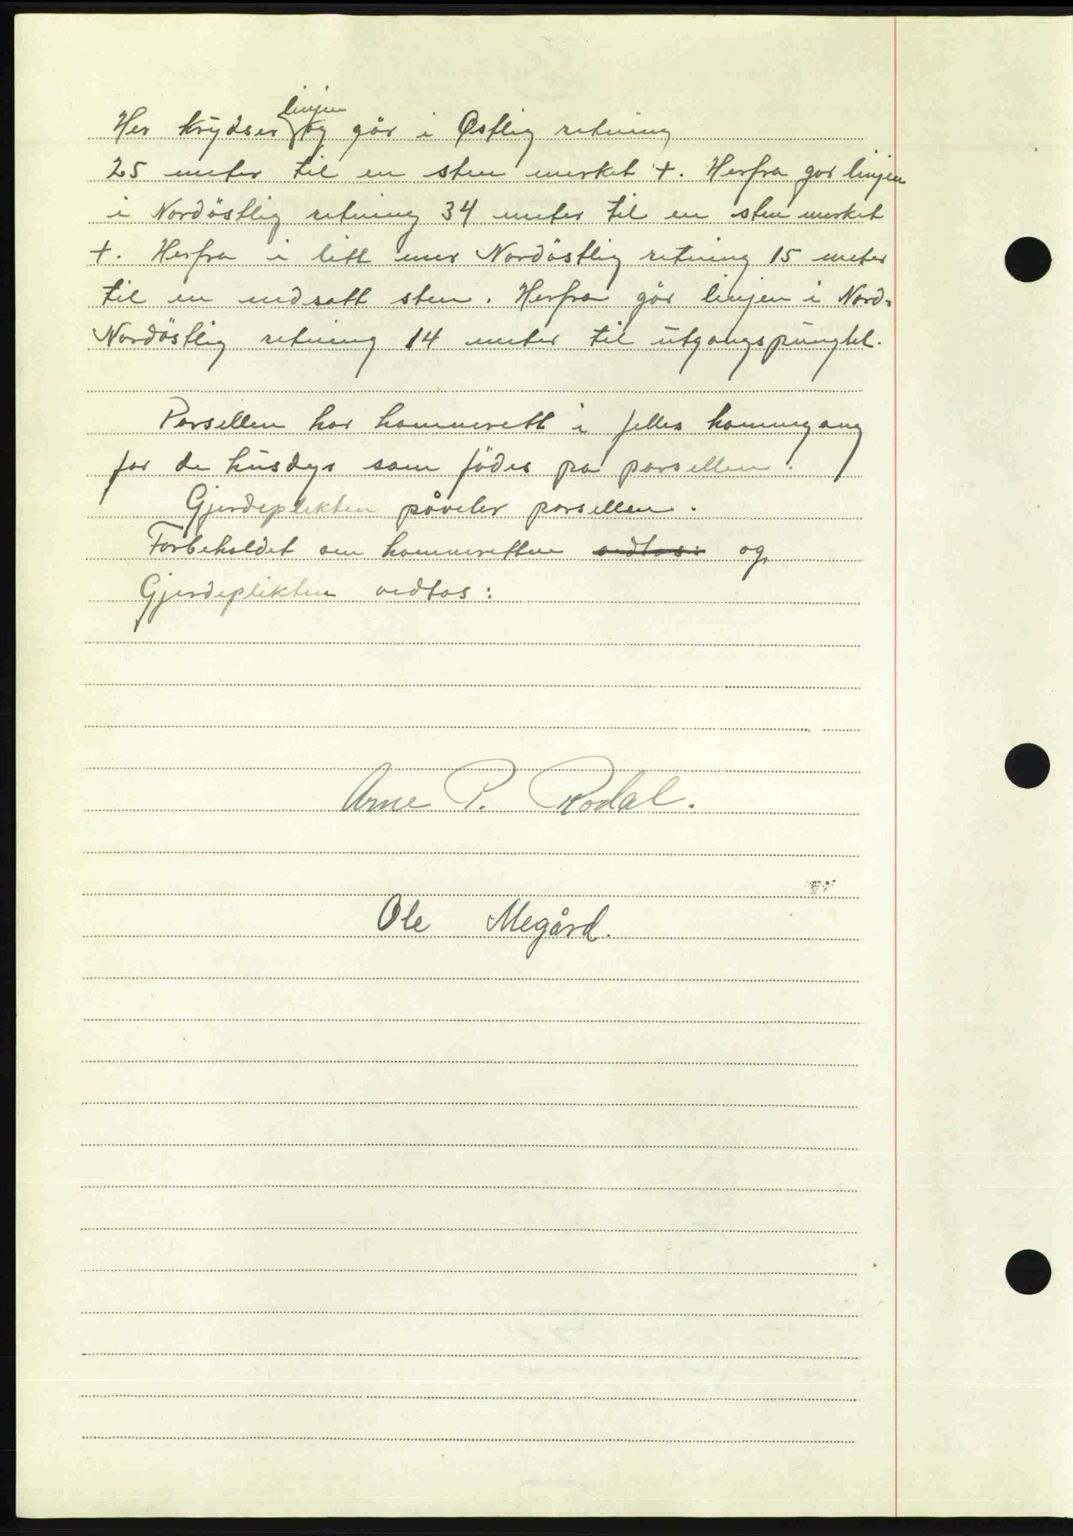 Her krydser linjen og går i Østlig retning
25 meter til en sten merket +. Herfra gar linjen
i Nordöstlig retning 34 meter til en sten merket
+. Herfra i litt mer Nordöstlig retning 15 meter
til en nedsatt sten. Herfra går linjen i Nord-
Nordöstlig retning 14 meter til utgangspungtet.
Parsellen har hamnerett i felles hamnegang
for de husdyr som födes på parsellen.
Gjerdeplikten påviler parsellen.
Forbeholdet om hamneretten vedtas: og
Gjerdeplikten vedtas:
Arne P. Rodal.
Ole Megård.